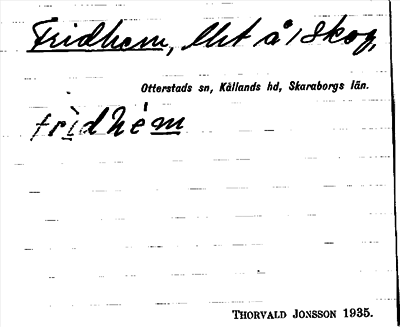 Fridhem, lht å 1 Skog,
Otterstads sn, Kållands hd, Skaraborgs län.
frìdhém
THORVALD JONSSON 1935.